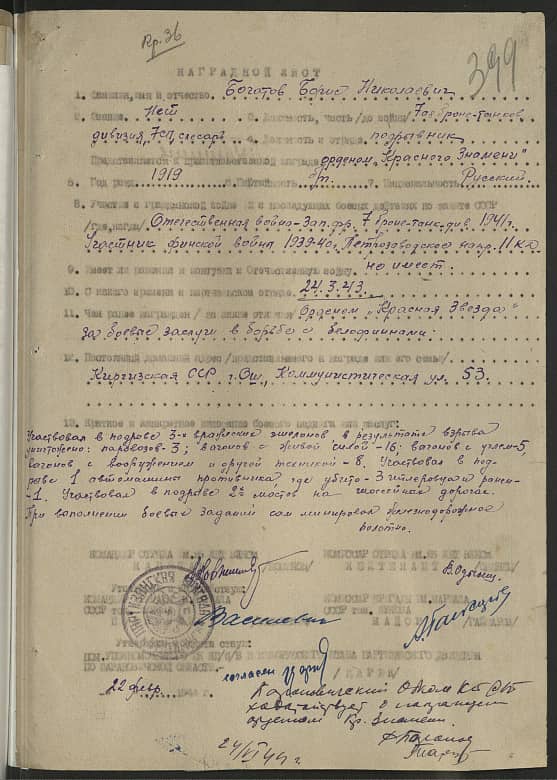 Кр. Зб
399
НАГРАДНОЙ ЛИСТ
1. Фамилия, имя и отчество Богатов Борис Николаевич
2. Звание Нет 3. Должность, часть /до войны/ 7ая броне-танков.
дивизия, 7сп, слесарь 4. Должность в отряде подрывник
Представляется к правительственной награде орденом "Красного Знамени"
5. Год рожд. 1919 6. Партийность б/п. 7. Национальность Русский
8. Участие в гражданской войне и в последующих боевых действиях по защите СССР
/где, когда/ Отечественная война-Зап.фр. 7 броне-танк.див 1941г.
Участник финской война 1939-40г, Петрозаводское напр.
9. Имеет ли ранения и контузии в Отечественную войну. не имеет.
10. С какого времени в партизанском отряде. 24.3.43.
11. Чем ранее награжден /за какие отличия Орденом "Красная Звезда"
за боевые заслуги в борьбе с белофиннами.
12. Постоянный домашний адрес /представляемого к награде или его семьи/
Киргизская ССР г.Ош, Коммунистическая ул 53.
13. Краткое и конкретное изложение боевого подвига или заслуг:
Участвовал в подрыве 3-х вражеских эшелонов в результате взрыва
уничтожено: паровозов-3; вагонов с живой силой-16; вагонов с углем-5,
вагонов с вооружением и другой техникой-8. Участвовал в под-
рыве 1 автомашины противника, где убито-3 гитлеровца и ранен-
-1. Участвовал в подрыве 2х мостов на шоссейной дорогах.
При выполнении боевых заданий сам минировал железнодорожное
полотно.
КОМАНДИР ОТРЯДА КОМИССАР ОТРЯДА
Утв
КОМАНДИР КОМИССАР БРИГАДЫ
СССР СССР
Василевич
Утверждение
ПО БАРАНОВИЧСКОЙ ОБЛАСТИ
согласен /ЦАРЮК/
22 февр. 1944 г.
Барановический Обком КП(б)Б
ходатайствует о награждении
орденом Кр. Знамени.
24/VI 44г